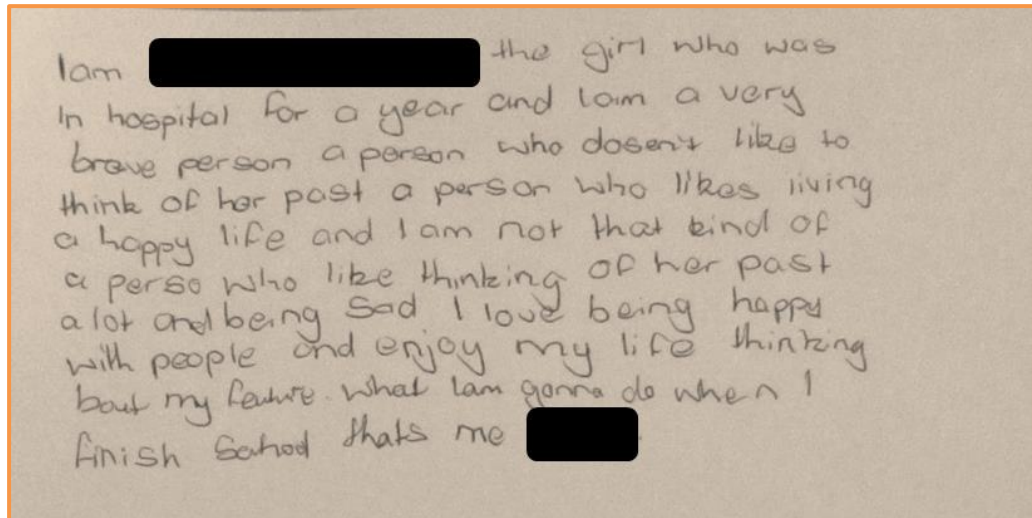 Iam the girl who was
In hospital for a year and Iam a very
brave person a person who dosen't like to
think of her past a person who likes living
a happy life and I am not that kind of
a perso who like thinking of her past
a lot and being sad I love being happy
with people and enjoy my life thinking
bout my feuture. what Iam gonna do when I
finish Sahool thats me